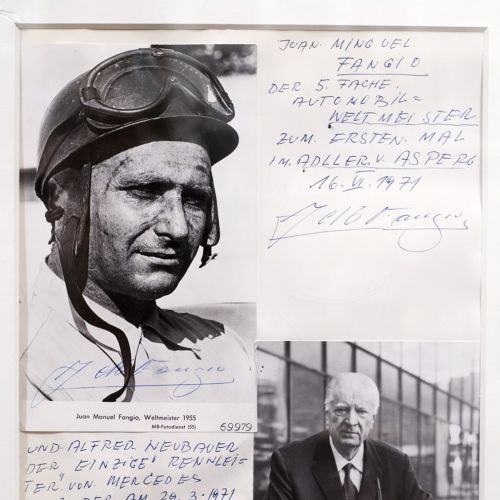 JUAN. MINGUEL
FANGIO
DER 5. FACHE.
AUTOMOBIL=
WELTMEISTER
ZUM. ERSTEN. MAL
IM. ADLLER. V. ASPERG
16. VI. 1971
Fangio
Fangio
Juan Manuel Fangio, Weltmeister 1955
MB-Fotodienst (55)
69979
UND. ALFRED NEUBAUER
DER "EINZIGE" RENNLEI=
TER". VON. MERCEDES
DER AM 29.3.1971